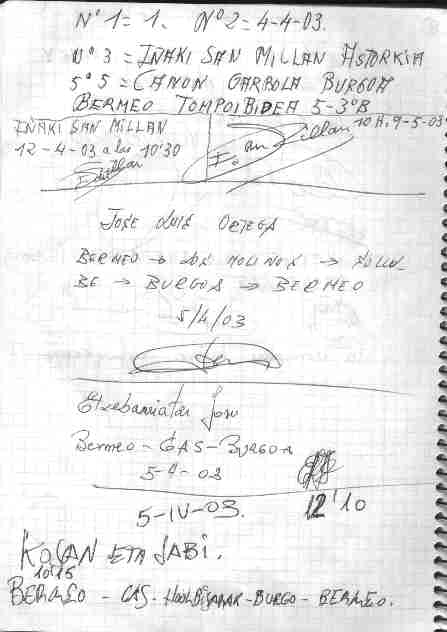 Nº 1 = 1. Nº 2 = 4-4-03.
Nº 3 = IÑAKI SAN MILLAN ASTORKIA
5º 5 = CANON GARBOLA BURGOA
BERMEO TOMPOIBIDEA 5-3ºB
IÑAKI SAN MILLAN
12-4-03 a las 10'30
Millan
I. San Millan 10 H. 9-5-03
JOSE LUIS ORTEGA
BERMEO → LOS MOLINOS → SOLLU-
BE → BURGOA → BERMEO
5/4/03
Etxebarriatar Josu
Bermeo - GAS - BURGOA
5-4-03
5-IV-03. 12'10
KOLAN ETA JABI.
10'15
BERMEO - GAS - - BURGO - BERMEO.